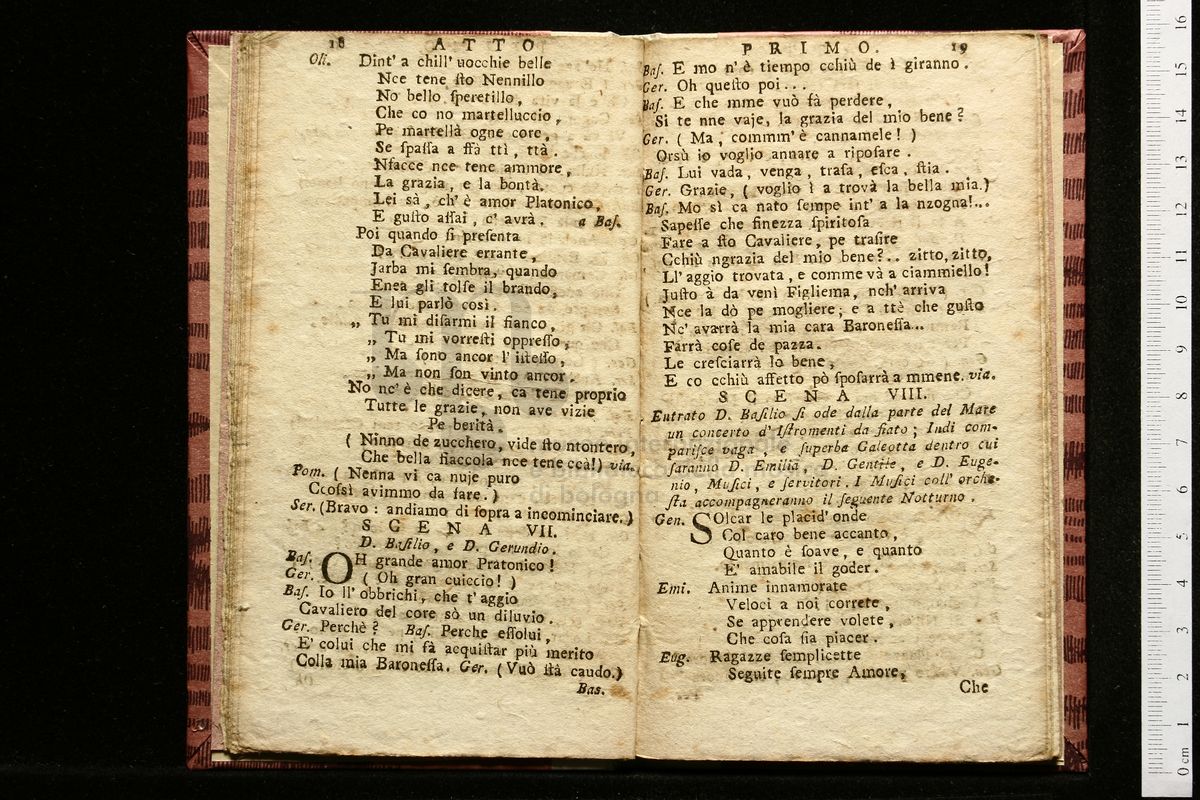 18 ATTO
Oli. Dint' a chill' uocchie belle
Nce tene ſto Nennillo
No bello ſperetillo,
Che co no martelluccio,
Pe martellà ogne core,
Se ſpaſſa a ffà ttì, ttà.
Nfacce nce tene ammore,
La grazia, e la bontà.
Lei sà, ch' è amor Platonico,
E guſto aſſai, c' avrà. a Baſ.
Poi quando ſi preſenta
Da Cavaliere errante,
Jarba mi ſembra, quando
Enea gli tolſe il brando,
E lui parlò così.
„ Tu mi diſarmi il fianco,
„ Tu mi vorreſti oppreſſo,
„ Ma ſono ancor l' iſteſſo,
„ Ma non ſon vinto ancor.
No nc' è che dicere, ca tene proprio
Tutte le grazie, non ave vizie
Pe berità.
( Ninno de zucchero, vide ſto ntontero,
Che bella fiaccola nce tene ccà!) via.
Pom. ( Nenna vi ca nuje puro
Ccoſsì avimmo da fare. )
Ser. (Bravo : andiamo di ſopra a incominciare.)
SCENA VII.
D. Baſilio, e D. Gerundio.
Baſ. OH grande amor Pratonico !
Ger. ( Oh gran cuiccio! )
Baſ. Io ll' obbrichi, che t' aggio
Cavaliero del core sò un diluvio.
Ger. Perchè? Baſ. Perche eſſolui,
E' colui che mi fà acquiſtar più merito
Colla mia Baroneſſa. Ger. (Vuò ſtà caudo.)
Bas.
PRIMO. 19
Baſ. E mo n' è tiempo cchiù de ì giranno.
Ger. Oh queſto poi...
Baſ. E che mme vuò fà perdere,
Si te nne vaje, la grazia del mio bene?
Ger. ( Ma, commm' è cannamele! )
Orsù io voglio annare a ripoſare.
Baſ. Lui vada, venga, traſa, eſca, ſtia.
Ger. Grazie, ( voglio ì a trovà la bella mia.)
Baſ. Mo sì ca nato ſempe int' a la nzogna!...
Sapeſſe che finezza ſpiritoſa
Fare a ſto Cavaliere, pe traſire
Cchiù ngrazia del mio bene?.. zitto, zitto,
Ll' aggio trovata, e comme và a ciammiello!
Juſto à da venì Figliema, nch' arriva
Nce la dò pe mogliere; e a ttè che guſto
Nc' avarrà la mia cara Baroneſſa...
Farrà coſe de pazza.
Le creſciarrà lo bene,
E co cchiù affetto pò ſpoſarrà a mmene. via.
SCENA VIII.
Entrato D. Baſilio ſi ode dalla parte del Mare
un concerto d' Iſtromenti da fiato ; Indi com-
pariſce vaga, e ſuperba Galeotta dentro cui
ſaranno D. Emilia, D. Gentile, e D. Euge-
nio, Muſici, e ſervitori. I Muſici coll' orche-
ſta accompagneranno il ſeguente Notturno.
Gen. SOlcar le placid' onde
Col caro bene accanto,
Quanto è ſoave, e quanto
E' amabile il goder.
Emi. Anime innamorate
Veloci a noi correte,
Se apprendere volete,
Che coſa ſia piacer.
Eug. Ragazze ſemplicette
Seguite ſempre Amore,
Che